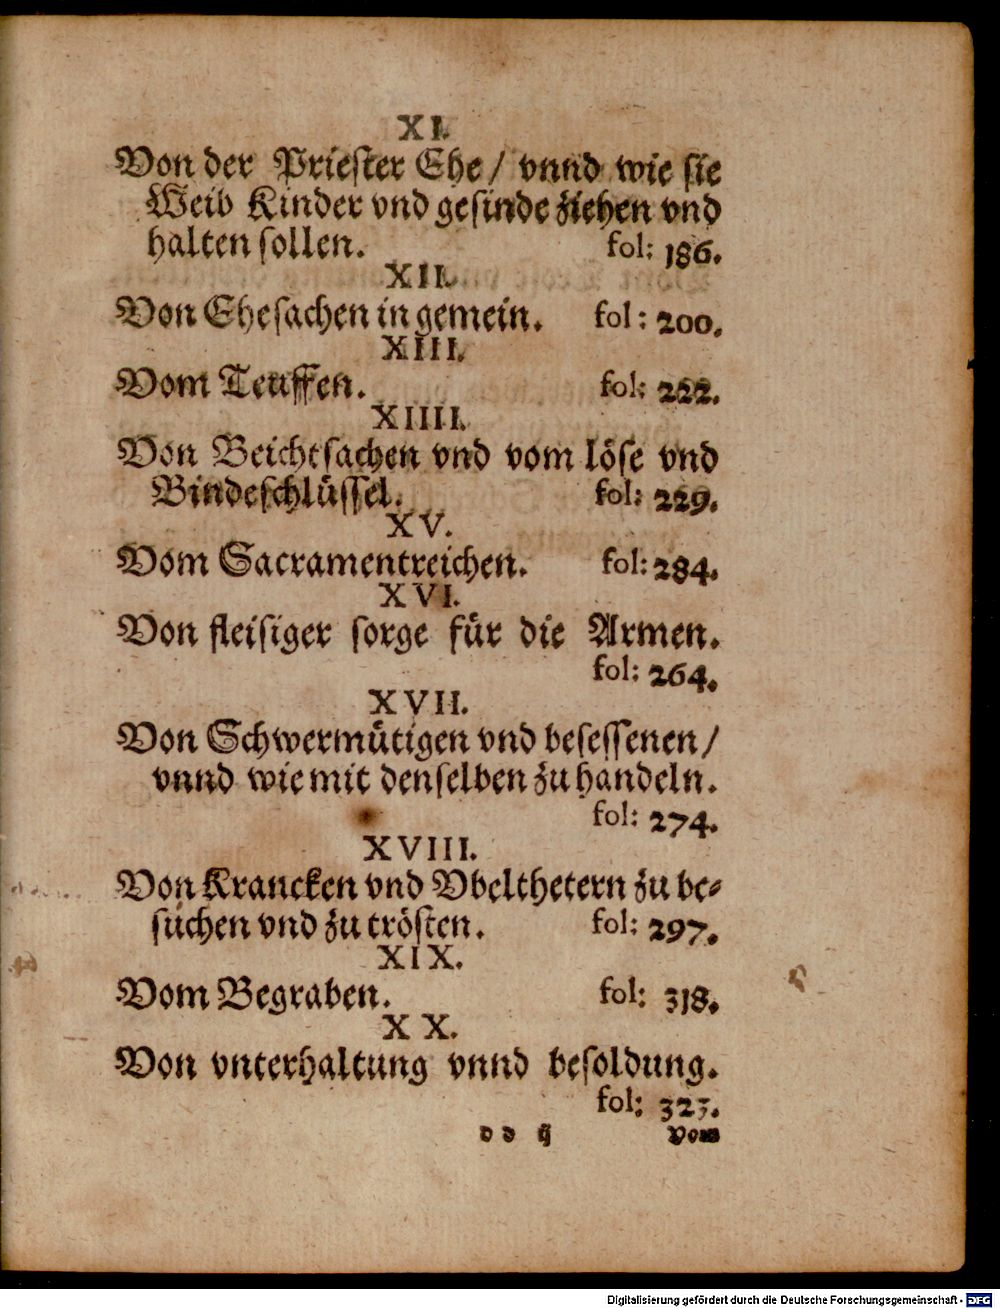 XI.
Von der Priester Ehe / vnnd wie sie
Weib Kinder vnd gesinde ziehen vnd
halten sollen. fol: 186.
XII.
Von Ehesachen in gemein. fol: 200.
XIII.
Vom Teuffen. fol: 222.
XIIII.
Von Beichtsachen vnd vom löse vnd
Bindeschlüssel. fol: 229.
XV.
Vom Sacramentreichen. fol: 284.
XVI.
Von fleisiger sorge für die Armen.
fol: 264.
XVII.
Von Schwermütigen vnd besessenen /
vnnd wie mit denselben zu handeln.
fol: 274.
XVIII.
Von Krancken vnd Vbelthetern zu be-
suchen vnd zu trösten. fol: 297.
XIX.
Vom Begraben. fol: 318.
XX.
Von vnterhaltung vnnd besoldung.
fol: 323.
dd ij Vom
Digitalisierung gefördert durch die Deutsche Forschungsgemeinschaft - DFG